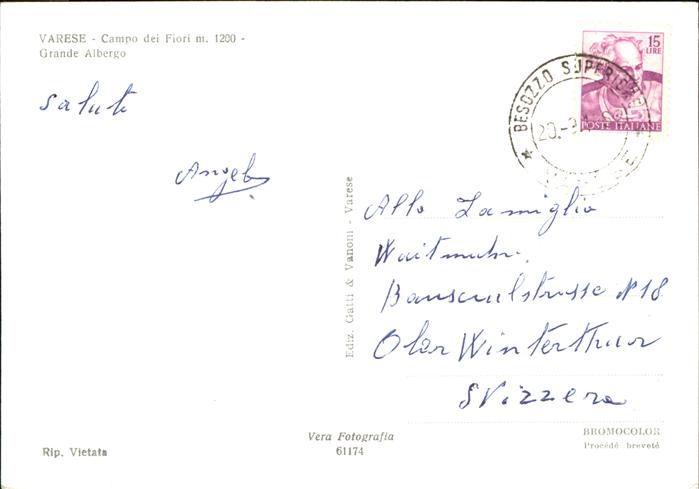 VARESE - Campo dei Fiori m. 1200 -
Grande Albergo
15
LIRE
POSTE ITALIANE
BESOZZO SUPERIORE
20.-9
Saluti
Angelo
Alla Famiglia
Waitmuhr.
strasse N 18
Ober Winterthur
Svizzera
Ediz. Gatti & Vanoni - Varese
Vera Fotografia
61174
Rip. Vietata
BROMOCOLOR
Procédé breveté